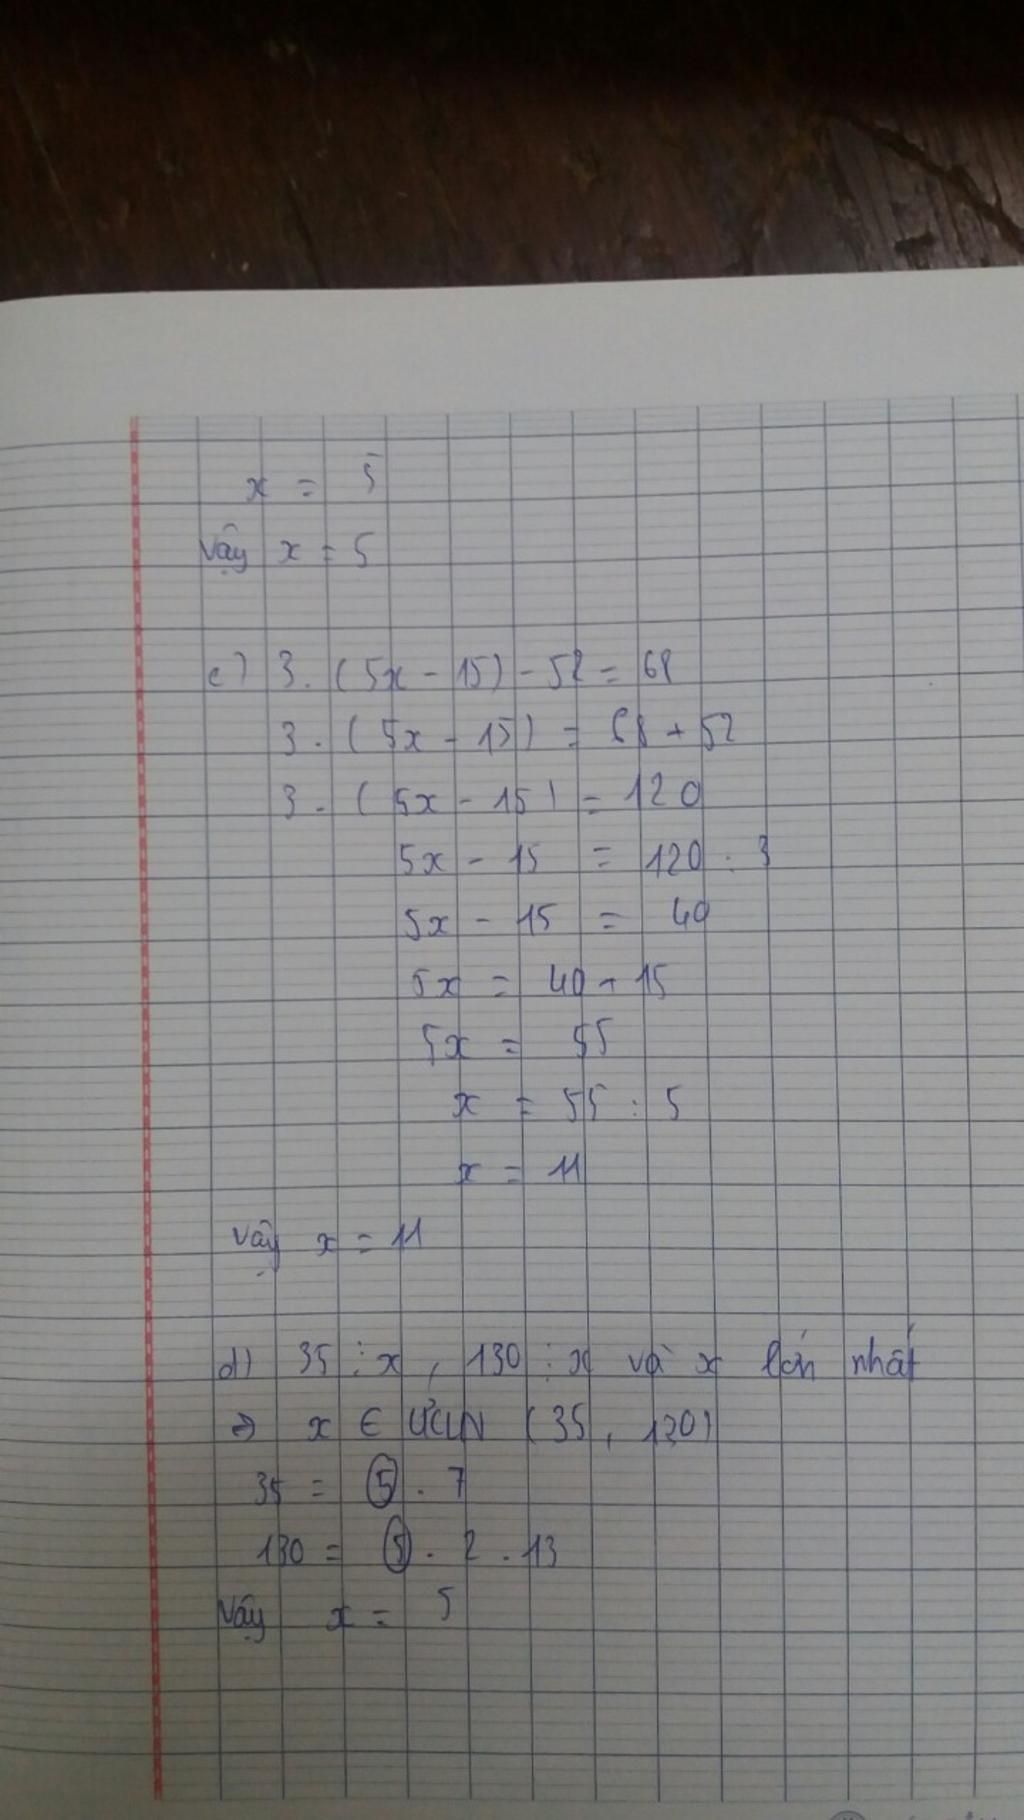 x = 5
Vậy x = 5
c) 3. (5x - 15) - 52 = 68
3. (5x - 15) = 68 + 52
3. (5x - 15) = 120
5x - 15 = 120 : 3
5x - 15 = 40
5x = 40 + 15
5x = 55
x = 55 : 5
x = 11
Vậy x = 11
d) 35 ⋮ x , 130 ⋮ x và x lớn nhất
⇒ x ∈ ƯCLN (35, 130)
35 = 5 . 7
130 = 5 . 2 . 13
Vậy x = 5